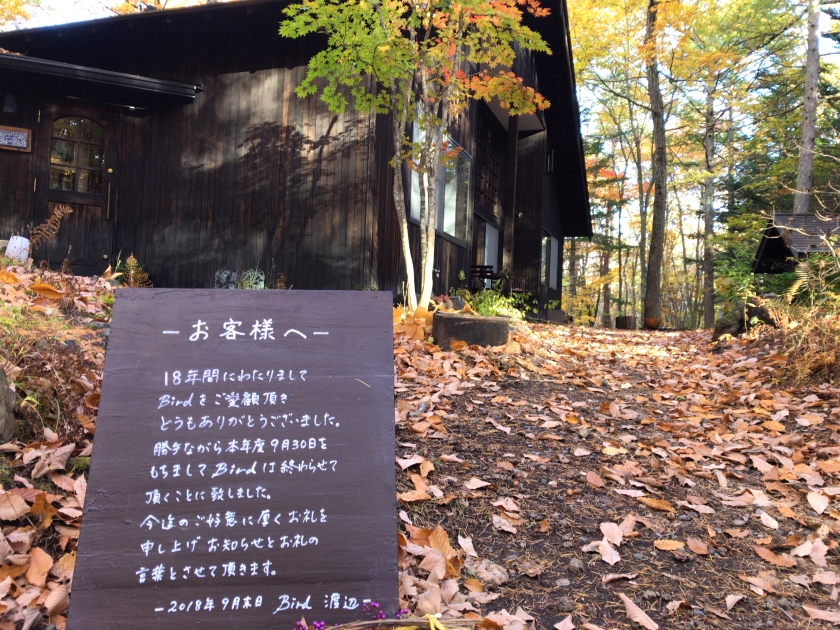 －お客様へ－
18年間にわたりまして
Birdをご愛顧頂き
どうもありがとうございました。
勝手ながら本年度9月30日を
もちましてBirdは終わらせて
頂くことに致しました。
今迄のご好意に厚くお礼を
申し上げお知らせとお礼の
言葉とさせて頂きます。
－2018年9月末日 Bird 渡辺－